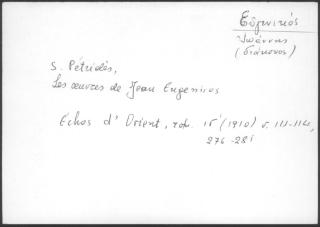 Εὐγενικός
Ἰωάννης
(διάκονος)
S. Pétridès,
Les œuvres de Jean Eugenicos
Echos d' Orient, τόμ. 13 (1910) σ. 111-114,
276-281